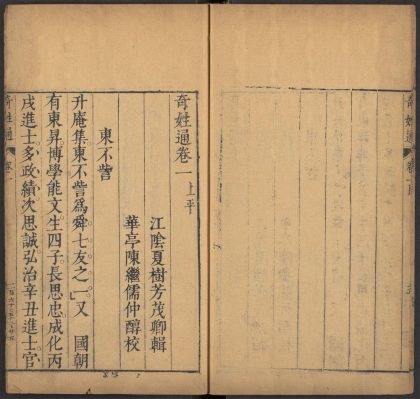 奇姓通
奇姓通卷一 上平
江陰夏樹芳茂卿輯
華亭陳繼儒仲醇校
東不訾
升庵集東不訾爲舜七友之一又 國朝
有東昇博學能文生四子長思忠成化丙
戌進士多政績次思誠弘治辛丑進士官
奇姓通